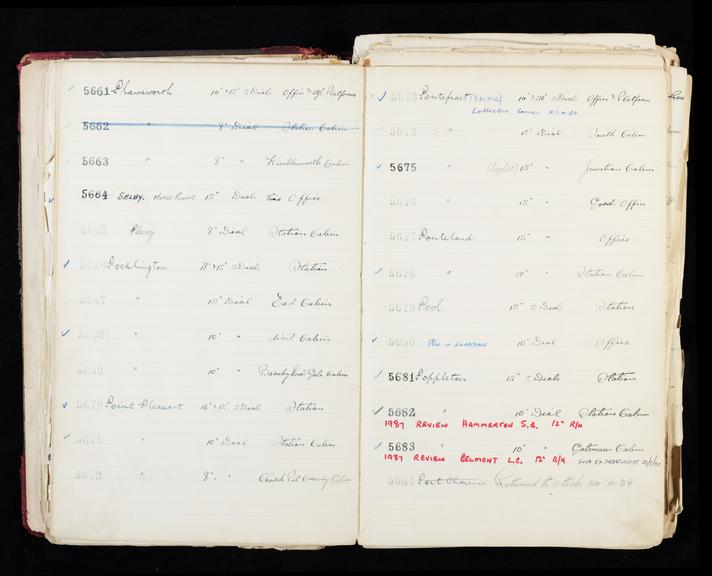 5661 Plawsworth 12" Dial Office & Platform
5662 " 8" Dial Station Cabin
5663 " 8" " Kimblesworth Cabin
5664 SELBY. MOTIVE POWER 12" Dial Time Office
5665 Plessey 8" Dial Station Cabin
5666 Pocklington 18" & 12" 2 Dials Station
5667 " 12" Dial East Cabin
5668 " 10" " West Cabin
5669 " 10" " Barnby Moor Gate Cabin
5670 Point Pleasant 2 Dials Station
5671 " 10" Dial Station Cabin
5672 " 8" " Church Pit Crossing Cabin
5673 Pontefract (Baghill) 2 Dial Office & Platform
Collectors Corner
5674 " 12" Dial South Cabin
5675 " (Baghill) 12" " Junction Cabin
5676 " 12" " Goods Office
5677 Ponteland 12" " Office
5678 " 10" " Station Cabin
5679 Pool 12" 2 Dial Station
5680 10" Dial Office
5681 Poppleton 12" 2 Dials Station
5682 " 10" Dial Station Cabin
1987 REVIEW HAMMERTON S.B. 12" R/H
5683 " 10" " Gatemans Cabin
1987 REVIEW BELMONT L.C. 12" R/H EX HARROGATE
5684 Port Clarence Returned to stock 11-39